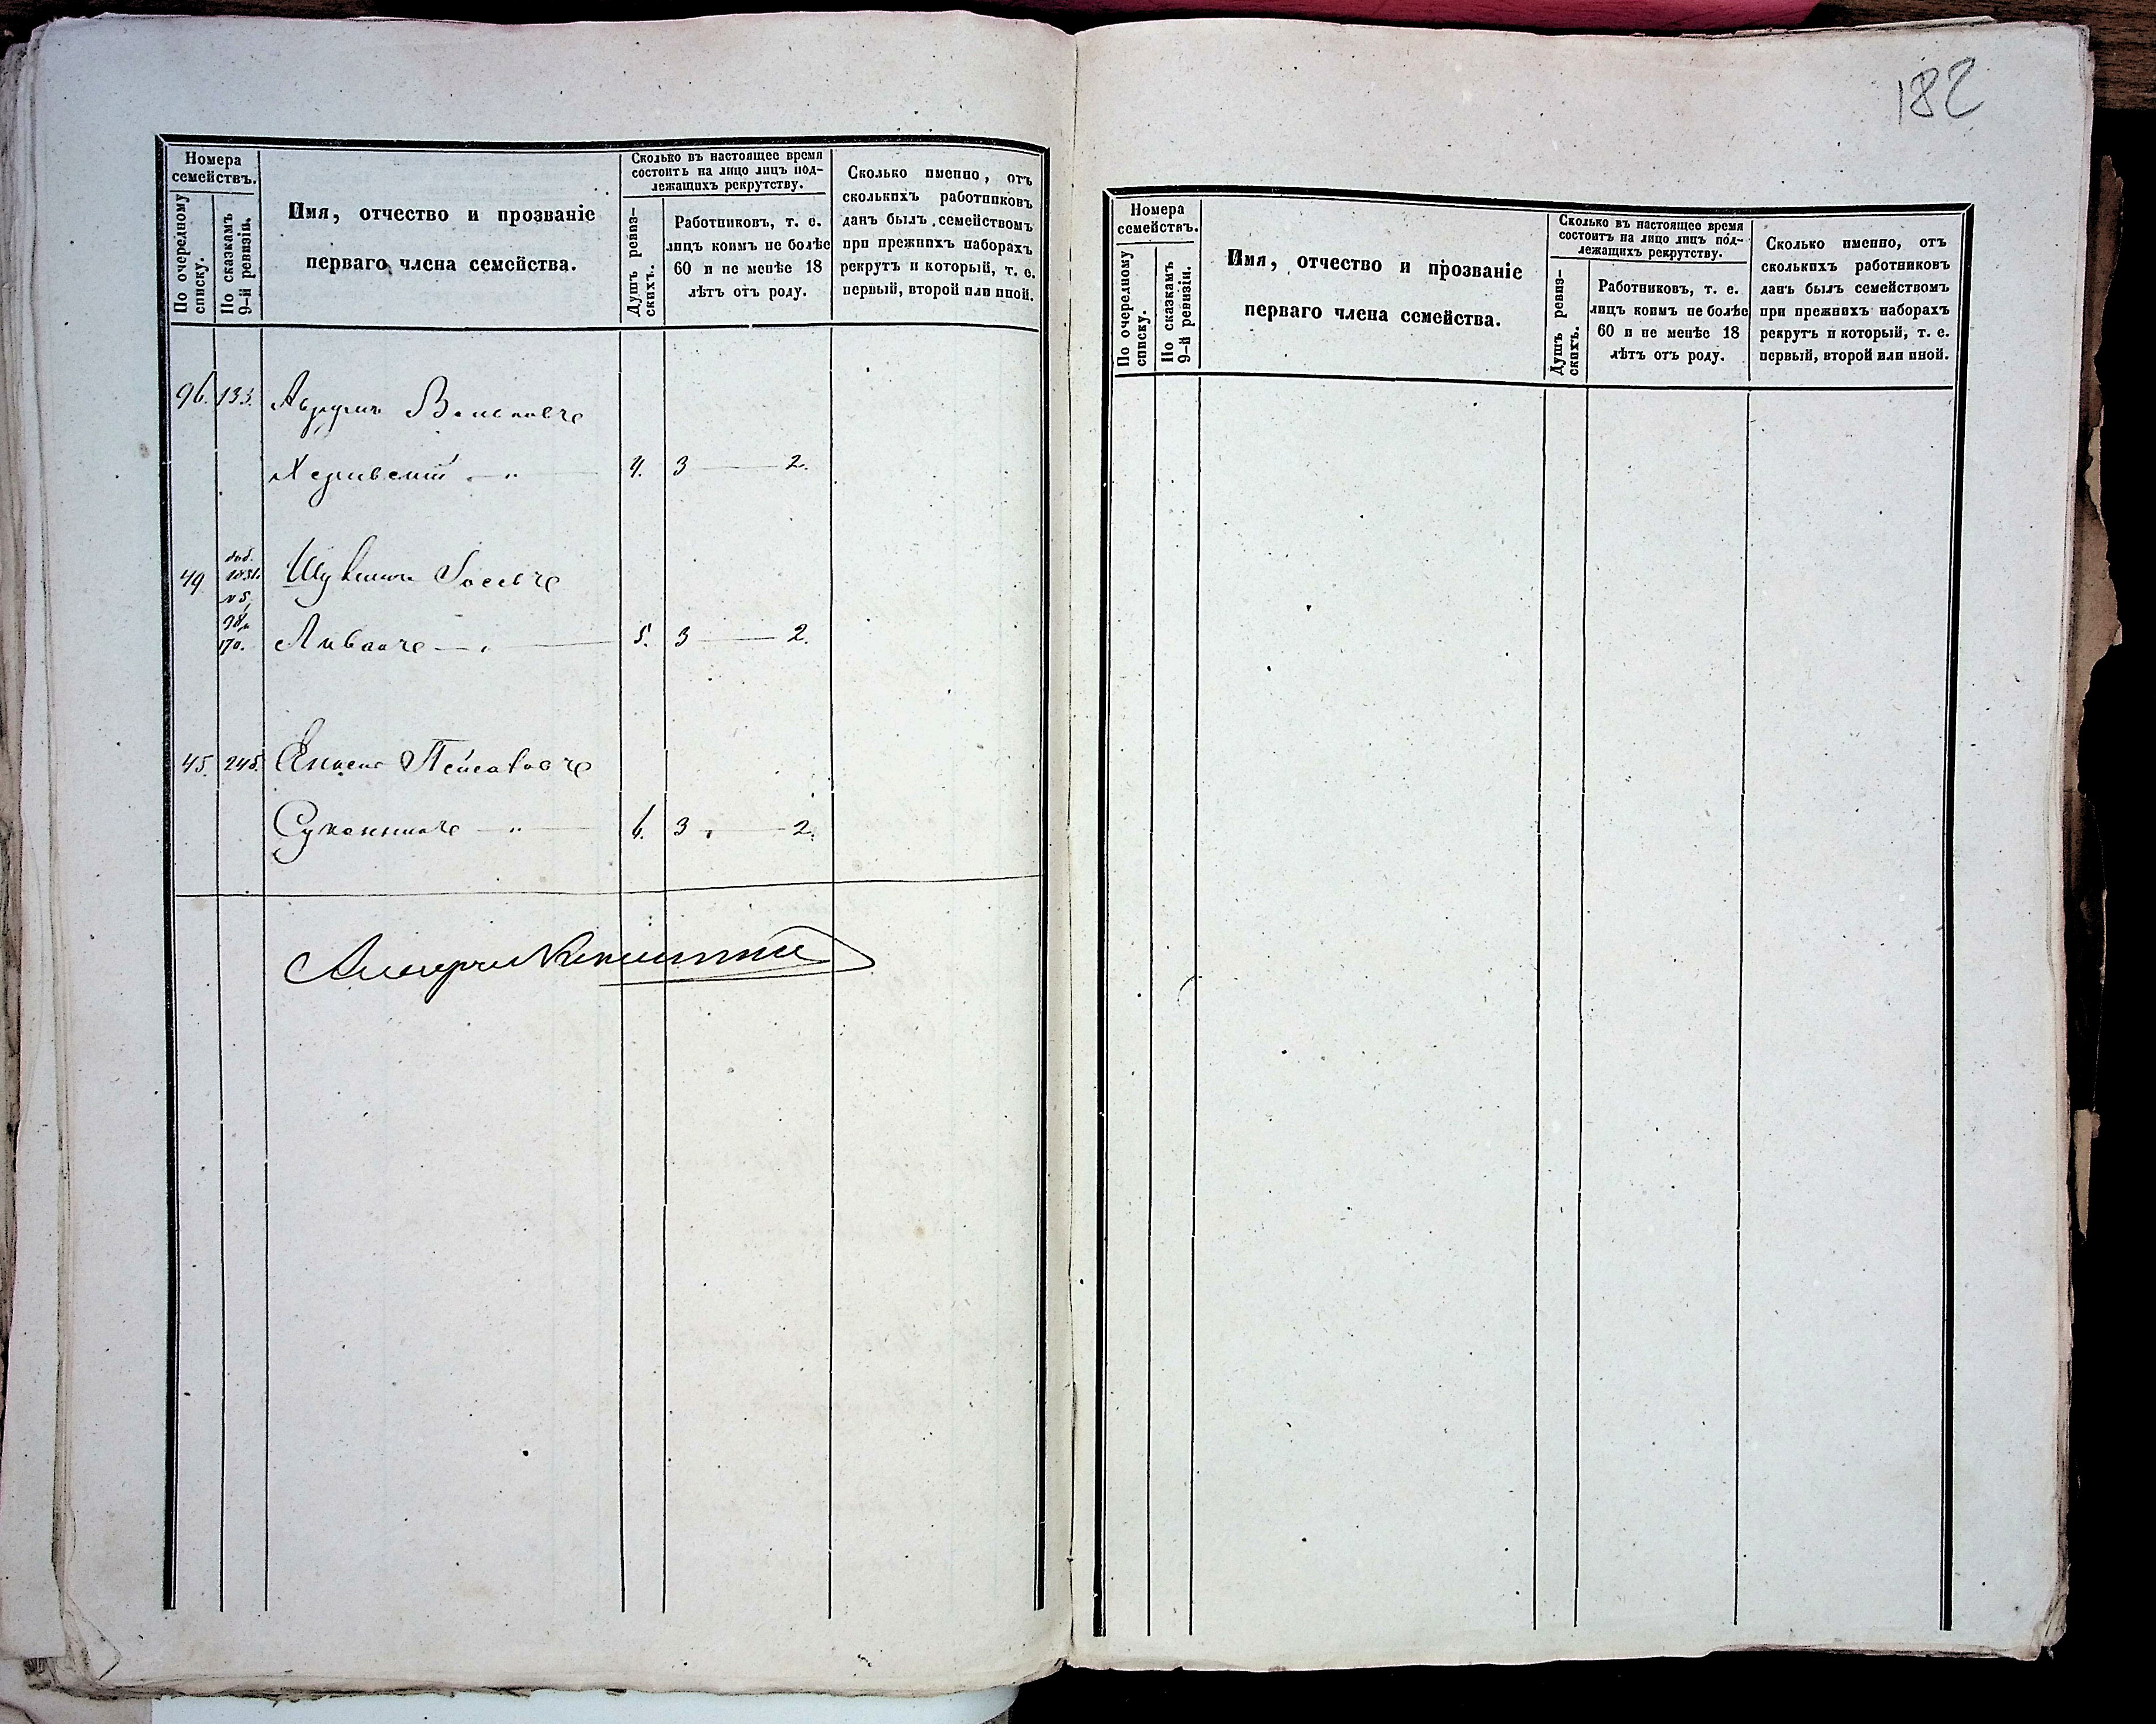 182
Номера семействъ.
По очередному списку.
По сказкамъ 9-й ревизіи.
Имя, отчество и прозваніе
перваго члена семейства.
Сколько въ настоящее время
состоитъ на лицо лицъ под-
лежащихъ рекрутству.
Душъ ревиз-
скихъ.
Работниковъ, т. е.
лицъ коимъ не болѣе
60 и не менѣе 18
лѣтъ отъ роду.
Сколько именно, отъ
сколькихъ работниковъ
данъ былъ семействомъ
при прежнихъ наборахъ
рекрутъ и который, т. е.
первый, второй или иной.
96. 133. Аврумъ Вольковъ
4. 3 — 2.
49 доб.
1851.
№ 5,
98, и
170.
5. 3 — 2.
45. 245.
6. 3 — 2.
Номера
семействъ.
По очередному
списку.
По сказкамъ
9-й ревизіи.
Имя, отчество и прозваніе
перваго члена семейства.
Сколько въ настоящее время
состоитъ на лицо лицъ под-
лежащихъ рекрутству.
Душъ ревиз-
скихъ.
Работниковъ, т. е.
лицъ коимъ не болѣе
60 и не менѣе 18
лѣтъ отъ роду.
Сколько именно, отъ
сколькихъ работниковъ
данъ былъ семействомъ
при прежнихъ наборахъ
рекрутъ и который, т. е.
первый, второй или иной.